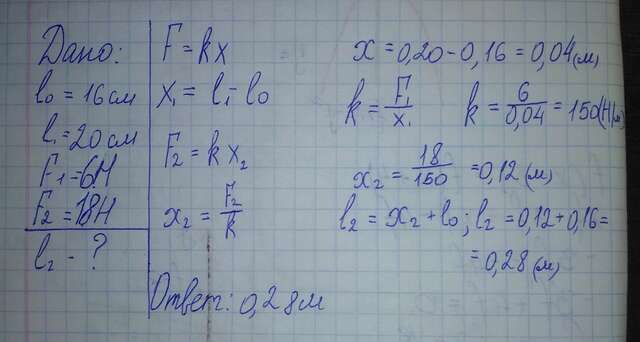 Дано:
l₀ = 16 см
l₁ = 20 см
F₁ = 6Н
F₂ = 18Н
l₂ - ?
F = kx
x₁ = l₁ - l₀
F₂ = k x₂
x₂ = F₂/k
x = 0,20 - 0,16 = 0,04 (м)
k = F₁/x₁ k = 6/0,04 = 150 (Н/м)
x₂ = 18/150 = 0,12 (м)
l₂ = x₂ + l₀; l₂ = 0,12 + 0,16 =
= 0,28 (м)
Ответ: 0,28 м